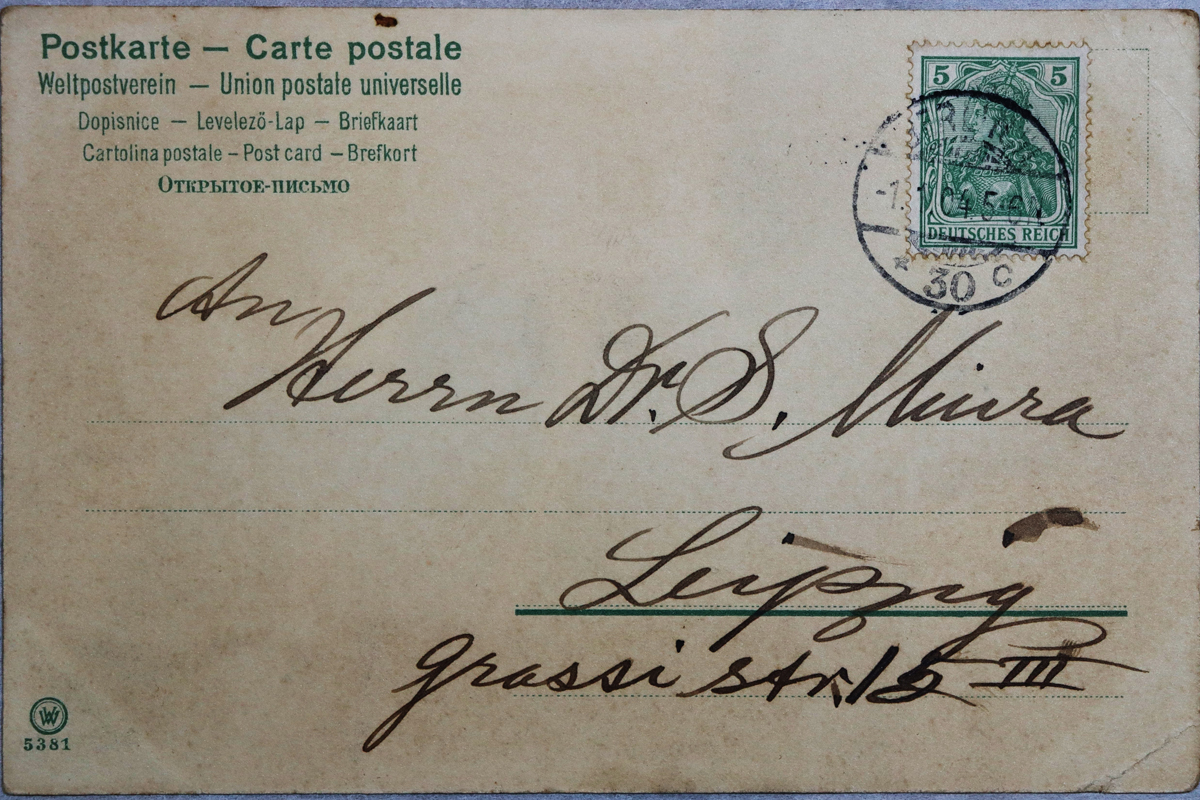 Postkarte — Carte postale
Weltpostverein — Union postale universelle
Dopisnice — Levelezö-Lap — Briefkaart
Cartolina postale – Post card – Brefkort
Открытое-письмо
5 5
BERLIN
-1.1.04.5-6N.
DEUTSCHES REICH
* 30 c
An
Herrn Dr. S. Miura
Leipzig
Grassi str. 15 III
W
5381